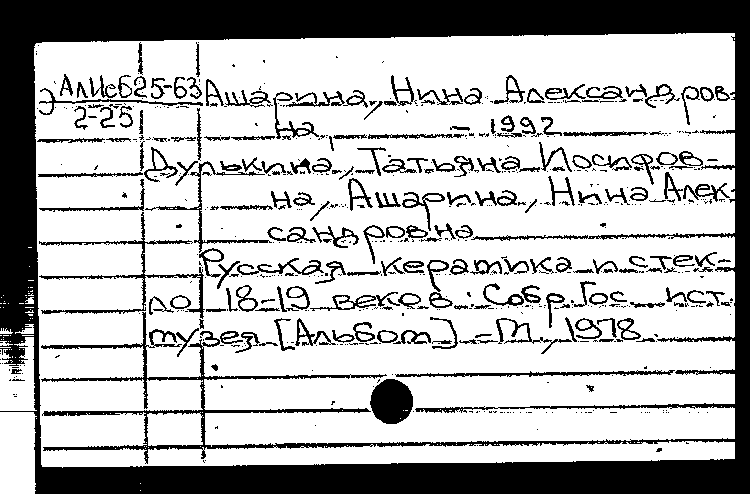 АлИсб25-63 Ашарина, Нина Александров-
Э 2-25
на, – 1992
Дулькина, Татьяна Иосифов-
на, Ашарина, Нина Алек-
сандровна
Русская керамика и стек-
ло 18-19 веков: Собр. Гос. ист.
музея [Альбом] – М., 1978.